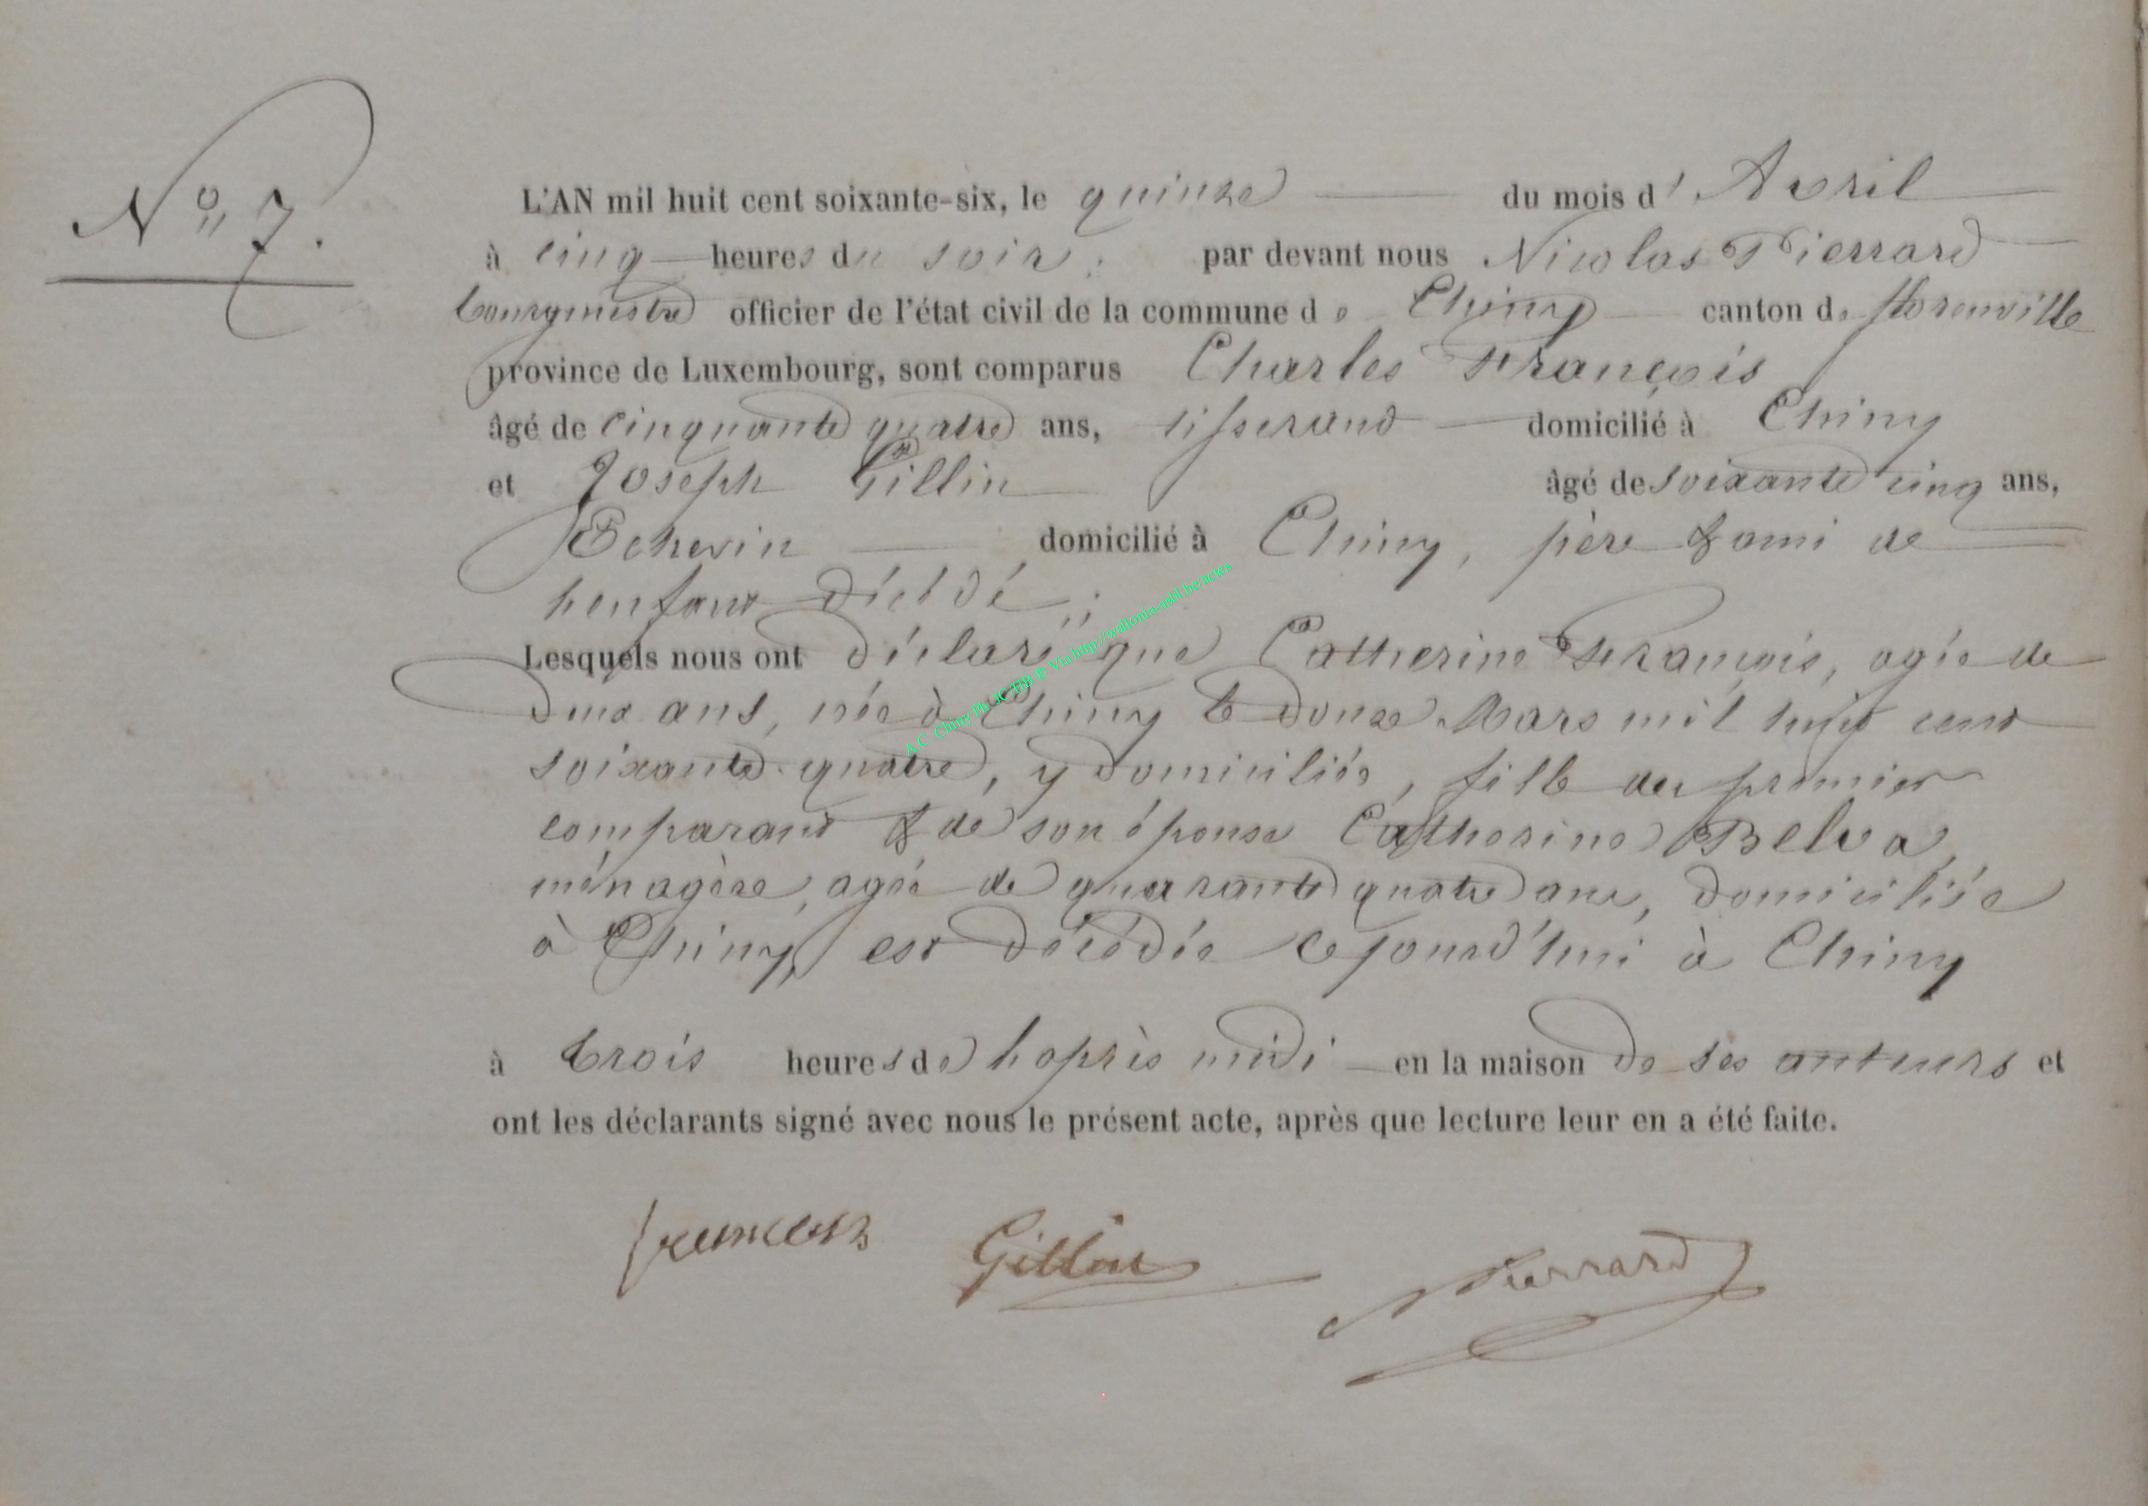 N° 7.
L'AN mil huit cent soixante-six, le quinze du mois d' Avril
à cinq heures du soir, par devant nous Nicolas Pierrard
bourgmestre officier de l'état civil de la commune de Chiny canton de florenville
province de Luxembourg, sont comparus Charles François
âgé de cinquante quatre ans, tisserand domicilié à Chiny
et Joseph Gillin âgé de soixante cinq ans,
Echevin domicilié à Chiny, père & ami de
l'enfant décédé;
Lesquels nous ont déclaré que Catherine François, agée de
deux ans, née à Chiny le douze Mars mil huit cent
soixante-quatre, y domiciliée, fille du premier
comparant & de son épouse Catherine Belva,
ménagère, agée de quarante quatre ans, domiciliée
à Chiny, est décédée cejourd'hui à Chiny
à trois heures de l'après midi en la maison de ses auteurs et
ont les déclarants signé avec nous le présent acte, après que lecture leur en a été faite.
francois Gillin NPierrard
A.C. Chiny Ph. JC TIB @ Via http://wallonie-asbl.be/actes